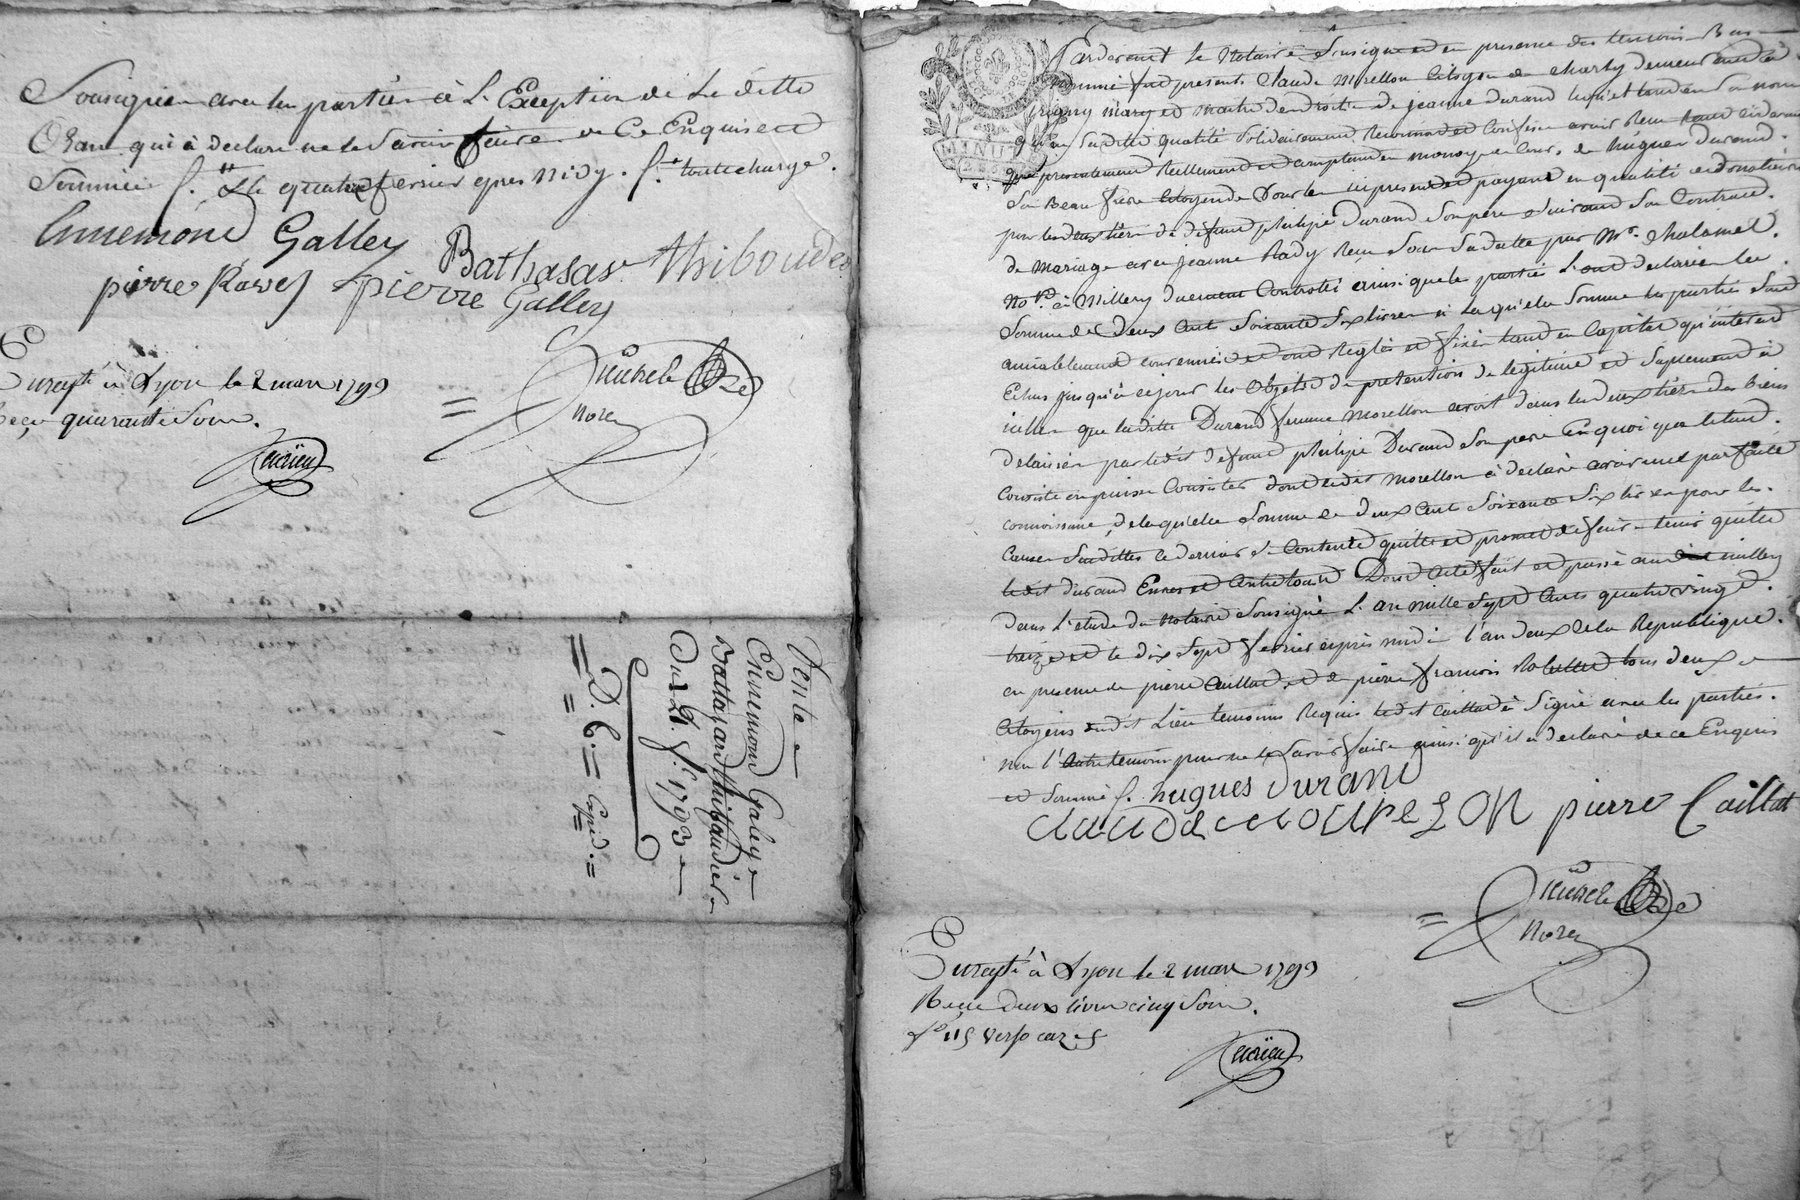 Soussignée avec les parties à L'Exception de La ditte
Oran qui à déclaré ne le Savoir faire de Ce Enquise et
Sommée f. Le quatre fevrier apres Midy. f. toutte charge.
Annemond Galley
Bathasar thiboudet
pierre Ravel pierre Galley
Michel
Nore
Enregté à Lyon le 2 mars 1793
Reçu quarante Sous.
Vente
Ennemond Galley
Batthazard thibaudier
Du 4 f. 1793
D. C. Expéd.
MINUTE
Pardevant Le Notaire Soussigné et en presence des temoins Bas
nommés fut present Claude Morellon Citoyen de Charly demeurant à
Irigny Mary et Maitre des droits de jeanne Durand lequel tant en Son nom
qu'en Sa ditte qualité Solidairement Reconnoit et Confesse avoir Reçu
presentement Reellement et comptant en monoye de Cour, de hugues Durand
Son Beau frere Citoyen de Vourles icy present et payant en qualité de donataire
pour les deux tiers de défunt philipe Durand Son pere Suivant Son Contrat
de Mariage avec jeanne Rady Reçu Sous Sa datte par Mr. Chalamel
Nore. à Millery duement Controllé ainsi que les parties L'ont déclaré la
Somme de Deux Cent Soixante Six livres à Laquelle Somme les parties Sont
amiablement convenues et ont Reglés et fixés tant en Capital qu'interest
Echus jusqu'à ce jour les Objets de pretention de légitime et Suplement d'
icelle que laditte Durand femme Morellon avoit dans les deux tiers des biens
délaissés par ledit défunt philipe Durand Son pere En quoi que le tout
Consiste ou puisse Consister dont ledit Morellon à déclaré avoir une parfaite
connoissance, de laquelle Somme de deux Cent Soixante Six livres pour les
Causes Susdittes ce dernier S'Contente quitte et promet de faire tenir quitte
ledit durand Envers et Contre tous Dont Acte fait et passé audit Millery
dans L'etude du Notaire Soussigné L'an mille Sept Cents quatre vingt
treize et le dix Sept fevrier après midi l'an deux de la Republique.
en presence de pierre Caillat et de pierre francois tous deux
Citoyens dudit Lieu temoins Requis ledit Caillat à Signé avec les parties
non l'Autre temoin pour ne le Savoir faire ainsi qu'il a déclaré de ce Enquis
et Sommé f. hugues Durand
claude mourelon pierre Caillat
Michel
Nore
Enregté à Lyon le 2 mars 1793
Reçu Deux livres cinq Sous.
fo 115 verso caze 5